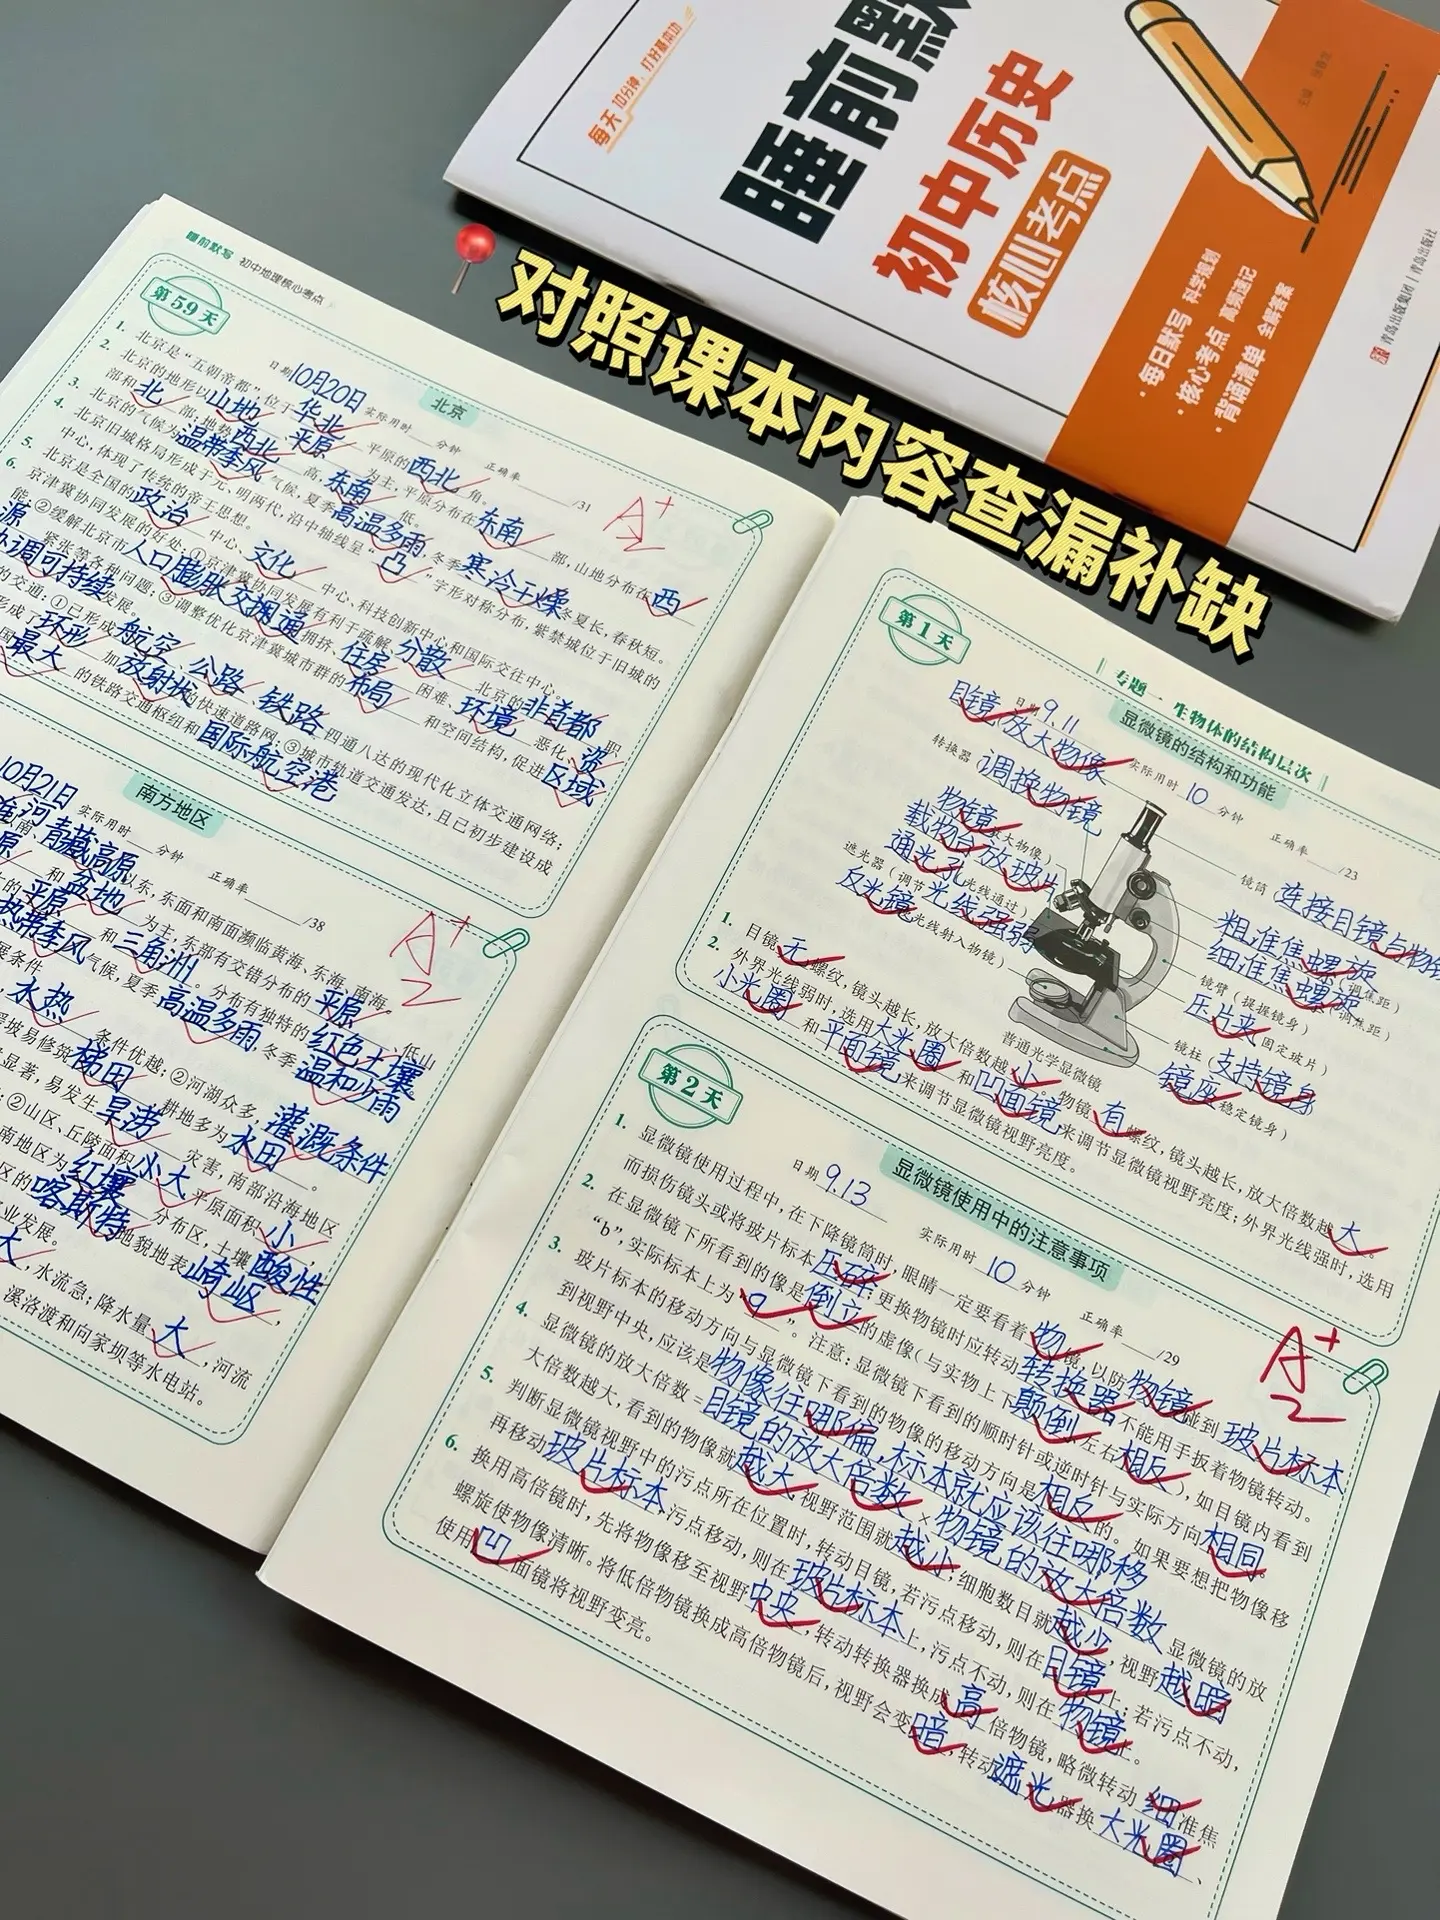 每天10分钟，打好基本功
睡前默
初中历史
核心考点
·每日默写 科学规划
·核心考点 高频速记
·背诵清单 全解答案
青岛出版集团 | 青岛出版社
对照课本内容查漏补缺
睡前默写 初中地理核心考点
第59天
北京
日期 10月20日 实际用时 分钟 正确率 /31
1. 北京是“五朝帝都”，位于 华北 平原的 西北 角。
2. 北京的地形以 山地 平原 为主，平原分布在 东南 部，山地分布在 西
部和 北 部；地势 西北 高，东南 低。
3. 北京的气候为 温带季风 气候，夏季 高温多雨，冬季 寒冷干燥 冬夏长，春秋短。
4. 北京旧城格局形成于元、明两代，沿中轴线呈“凸”字形对称分布，紫禁城位于旧城的
中心，体现了传统的帝王思想。
5. 北京是全国的 政治 中心、文化 中心、科技创新中心和国际交往中心。
6. 京津冀协同发展的好处：①京津冀协同发展有利于疏解 分散 北京的 非首都 职
能；②缓解北京市 人口膨胀 交通 拥挤、住房 困难、环境 恶化、资
源 紧张等各种问题；③调整优化京津冀城市群的 布局 和空间结构，促进 区域
协调可持续 发展。
的交通：①已形成 航空、公路、铁路 四通八达的现代化立体交通网络；
形成了 环形 加 放射状 的快速道路网；③城市轨道交通发达，且已初步建设成
最大 的铁路交通枢纽和 国际航空港
A+
南方地区
10月21日 实际用时 分钟 正确率 /38
淮河 青藏高原 以东，东面和南面濒临黄海、东海、南海。
平原 和 盆地 为主，东部有交错分布的 平原 低山
热带季风 和 三角洲。分布有独特的 红色土壤
气候，夏季 高温多雨 冬季 温和少雨
展条件
水热 条件优越；②河湖众多，灌溉条件
缓坡易修筑 梯田 耕地多为 水田。
显著，易发生 旱涝 灾害，南部沿海地区
；②山区、丘陵面积 小大 平原面积 小
南地区为 红壤 分布区，土壤 酸性
区的 喀斯特 地貌地表 崎岖，
业发展。
大，水流急；降水量 大，河流
溪洛渡和向家坝等水电站。
A+
专题一 生物体的结构层次
第1天
显微镜的结构和功能
日期 9.11 实际用时 10 分钟 正确率 /23
目镜 放大物像
转换器 调换物镜
物镜（放大物像）
载物台 放玻片
通光孔（光线通过）
遮光器（调节 光线强弱
反光镜（光线射入物镜）
镜筒 连接目镜与物镜
粗准焦螺旋（调焦距）
细准焦螺旋（调焦距）
镜臂（握提镜身）
压片夹 固定玻片
镜柱（支持镜身）
镜座（稳定镜身）
普通光学显微镜
1. 目镜 无 螺纹，镜头越长，放大倍数越 小。物镜 有 螺纹，镜头越长，放大倍数越 大。
2. 外界光线弱时，选用 大光圈 和 凹面镜 来调节显微镜视野亮度；外界光线强时，选用
小光圈 和 平面镜 来调节显微镜视野亮度。
第2天
显微镜使用中的注意事项
日期 9.13 实际用时 10 分钟 正确率 /29
1. 显微镜使用过程中，在下降镜筒时，眼睛一定要看着 物 镜，以防 物镜 碰到 玻片标本
而损伤镜头或将玻片标本 压碎；更换物镜时应转动 转换器 不能用手扳着物镜转动。
2. 在显微镜下所看到的像是 倒立 的虚像（与实物上下 颠倒 左右 相反），如目镜内看到
“b”，实际标本上为“q”。注意：显微镜下看到的顺时针或逆时针与实际方向 相同
3. 玻片标本的移动方向与显微镜下看到的物像的移动方向是 相反 的。如果要想把物像移
到视野中央，应该是 物像往哪偏，标本就应该往哪移
4. 显微镜的放大倍数= 目镜的放大倍数×物镜的放大倍数 显微镜的放
大倍数越大，看到的物像就 越大，视野范围就 越小；细胞数目就 越少，视野 越暗
5. 判断显微镜视野中的污点所在位置时，转动目镜，若污点移动，则在 目镜 上；若污点不动，
再移动 玻片标本，污点移动，则在 玻片标本 上，污点不动，则在 物镜 上。
6. 换用高倍镜时，先将物像移至视野 中央，转动转换器换成 高 倍物镜，略微转动 细 准焦
螺旋使物像清晰。将低倍物镜换成高倍物镜后，视野会变 暗，转动 遮光 器换 大光圈、
使用 凹 面镜将视野变亮。
A+